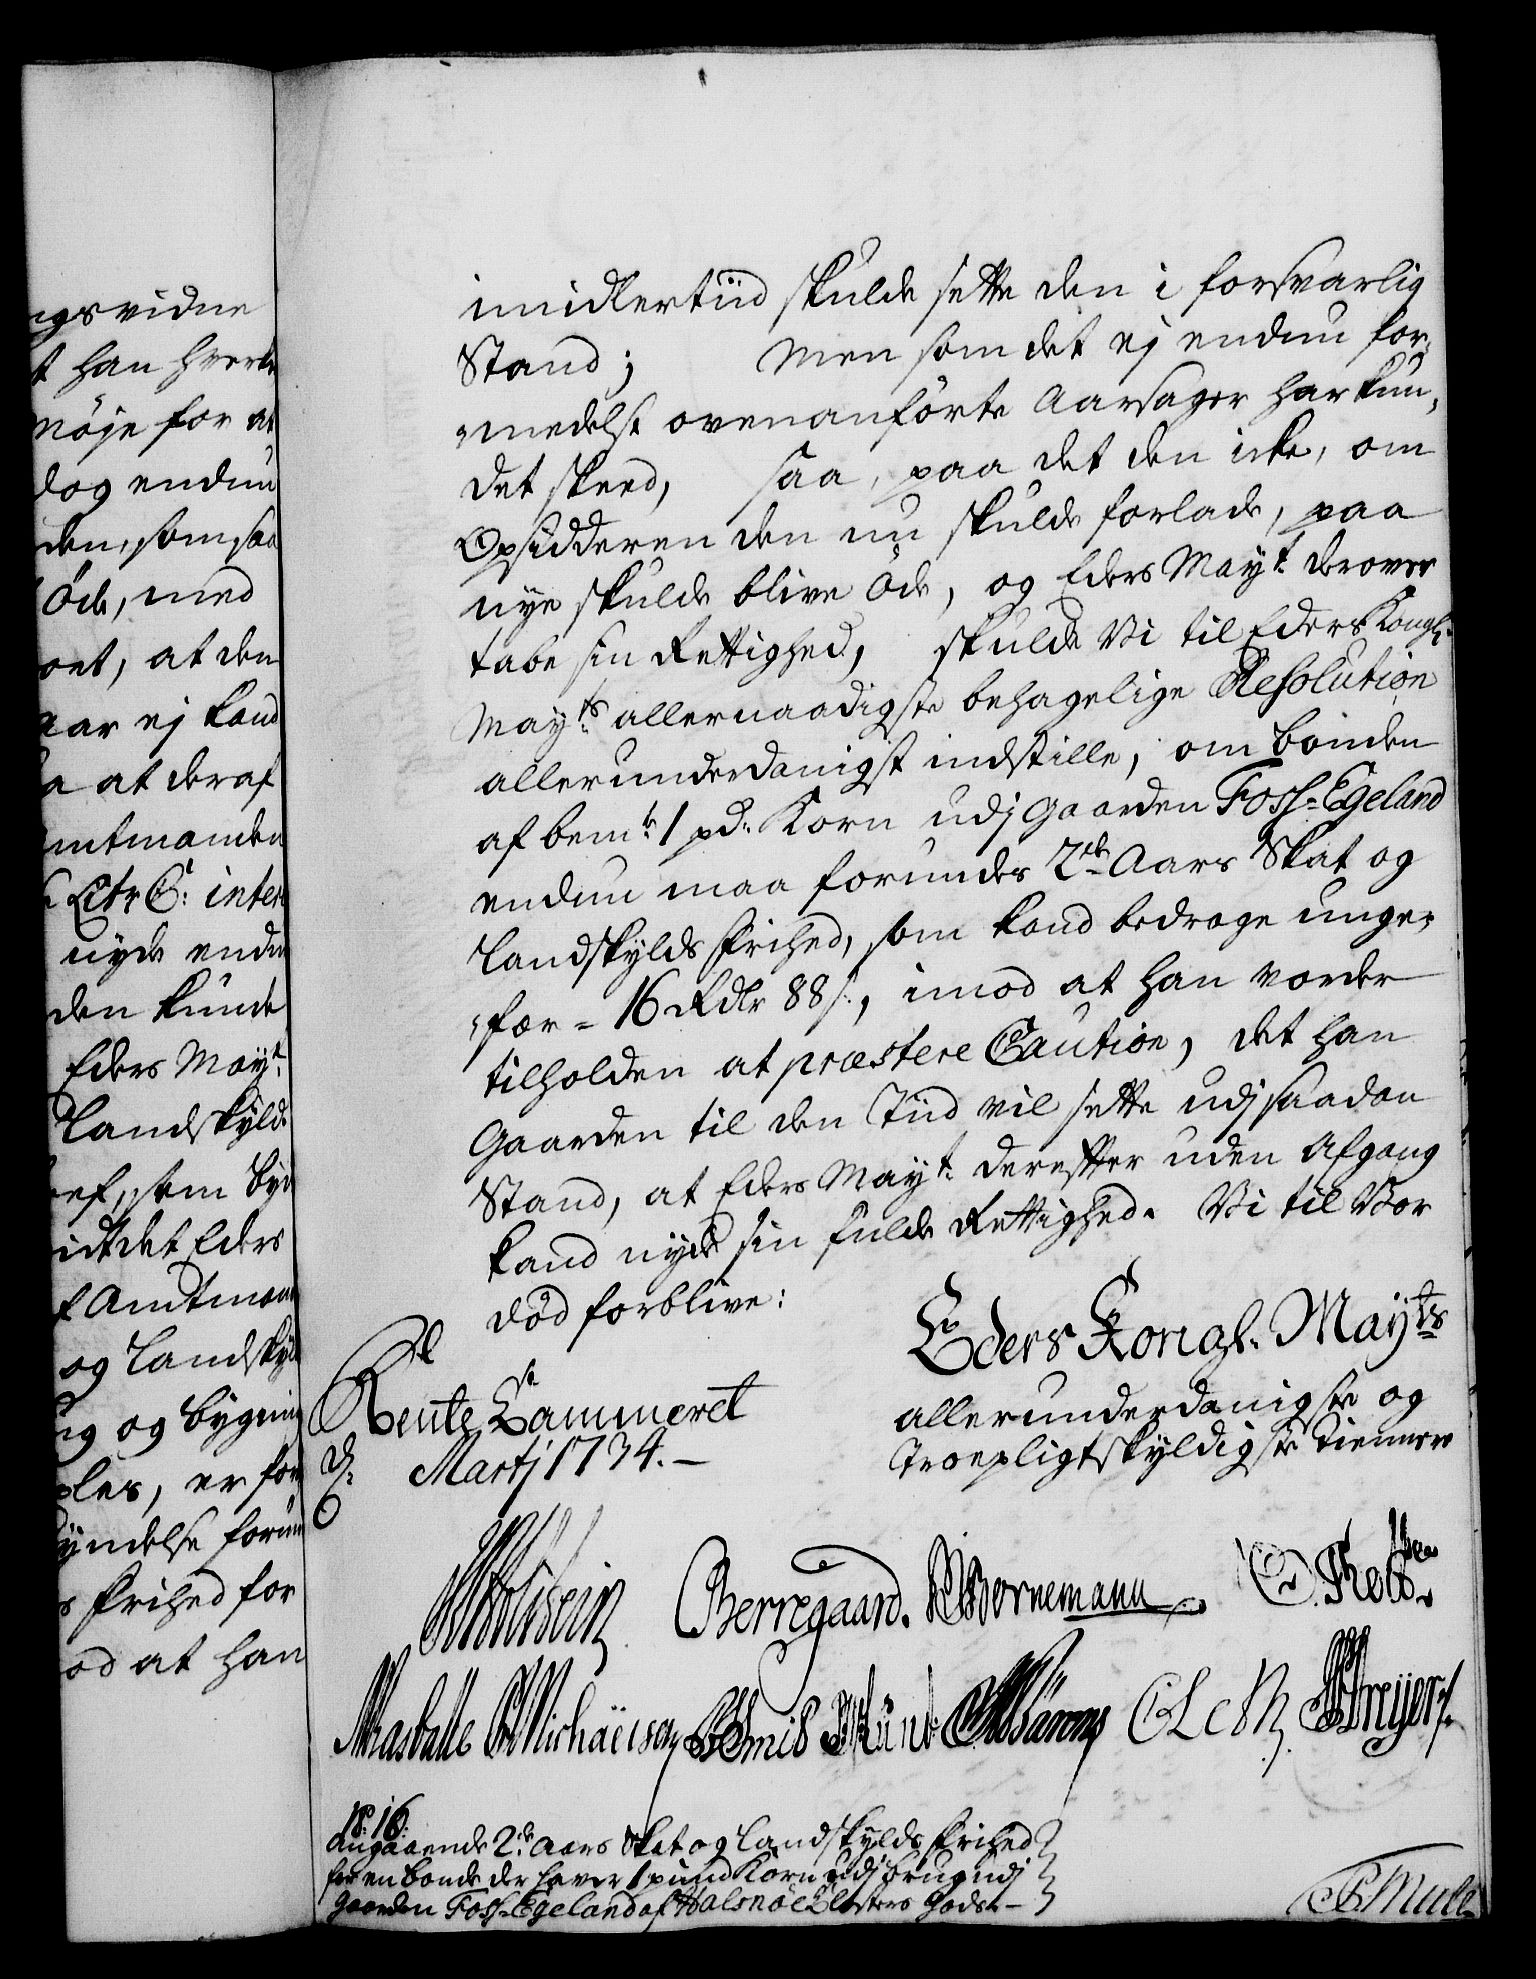 ngsvidne
t han hverk
nöje for at
dog endnu
den, som saa
öde, med
oet, at den
aar ej kand
a at deraf
mtmanden
Litr C: inter
nyde endn
den kunde
Eders Mayt.
Landskyld
ef, som byd
idt det Eders
f Amdtmann
og Landskyl
ng og bygning
ples, er for
yndelse forun
s frihed for
od at han
imidlertiid skulde sette den i forsvarlig
Stand; Men som det ej endnu for,
,medelst ovenanförte Aarsager har kun,
det skeed, saa, paa det den icke, om
Opsidderen den nu skulde forlade, paa
nye skulde blive öde, og Eders Mayt. derover
tabe sin Rettighed, skulde Vi til Eders Kongl.
Mayts. allernaadigste behagelige Resolution
allerunderdanigst indstille, om bonden
af bemte. 1 pd. Korn udj Gaarden Foss-Egeland
endnu maa forundes 2de Aars Skat og
Landskylds frihed, som kand bedrage unge,
,fær = 16 Rdlr 88 s., imod at han vorder
tilholden at præstere Caution, det han
Gaarden til den Tiid vil sette udj saadan
Stand, at Eders Mayt. derefter uden Afgang
kand nyde sin fulde Rettighed. Vi til Vor
död forblive:
Eders Kongl. Mayts
allerunderdanigste og
Troepligtskyldigste Tiennere
Rente Cammeret
d.
Martj 1734.
Holstein Berregaard. Bornemann C. Thott
Rasballe Michaelsen Smith Munk Bärens C Leth Dreyer
No. 16.
Angaaende 2de Aars Skat og Landskylds frihed
for en bonde der haver 1 pund Korn udj brug udj
Gaarden Foss-Egeland af Halsnöe Closters Gods.
Mule